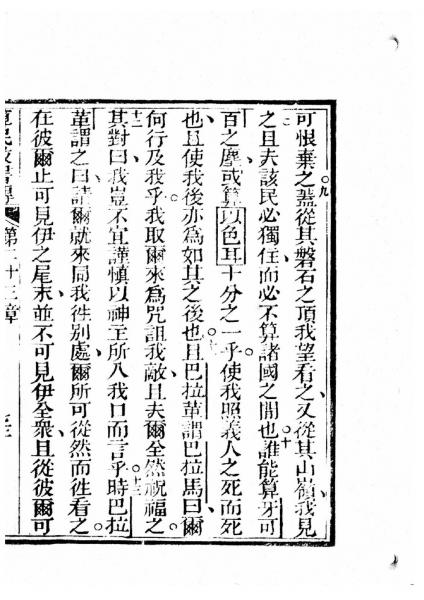 可恨棄之蓋從其磐石之頂我望看之又從其山嶺我見
之且夫該民必獨住而必不算諸國之間也誰能算牙可
百之塵或算以色耳十分之一乎使我照義人之死而死
也且使我後亦為如其之後也且巴拉革謂巴拉馬曰爾
何行及我乎我取爾來為咒詛我敵且夫爾全然祝福之
其對曰我豈不宜謹慎以神主所入我口而言乎時巴拉
革謂之曰請爾就來同我徃別處爾所可從然而徃看之
在彼爾止可見伊之尾末並不可見伊全衆且從彼爾可
第二十三章